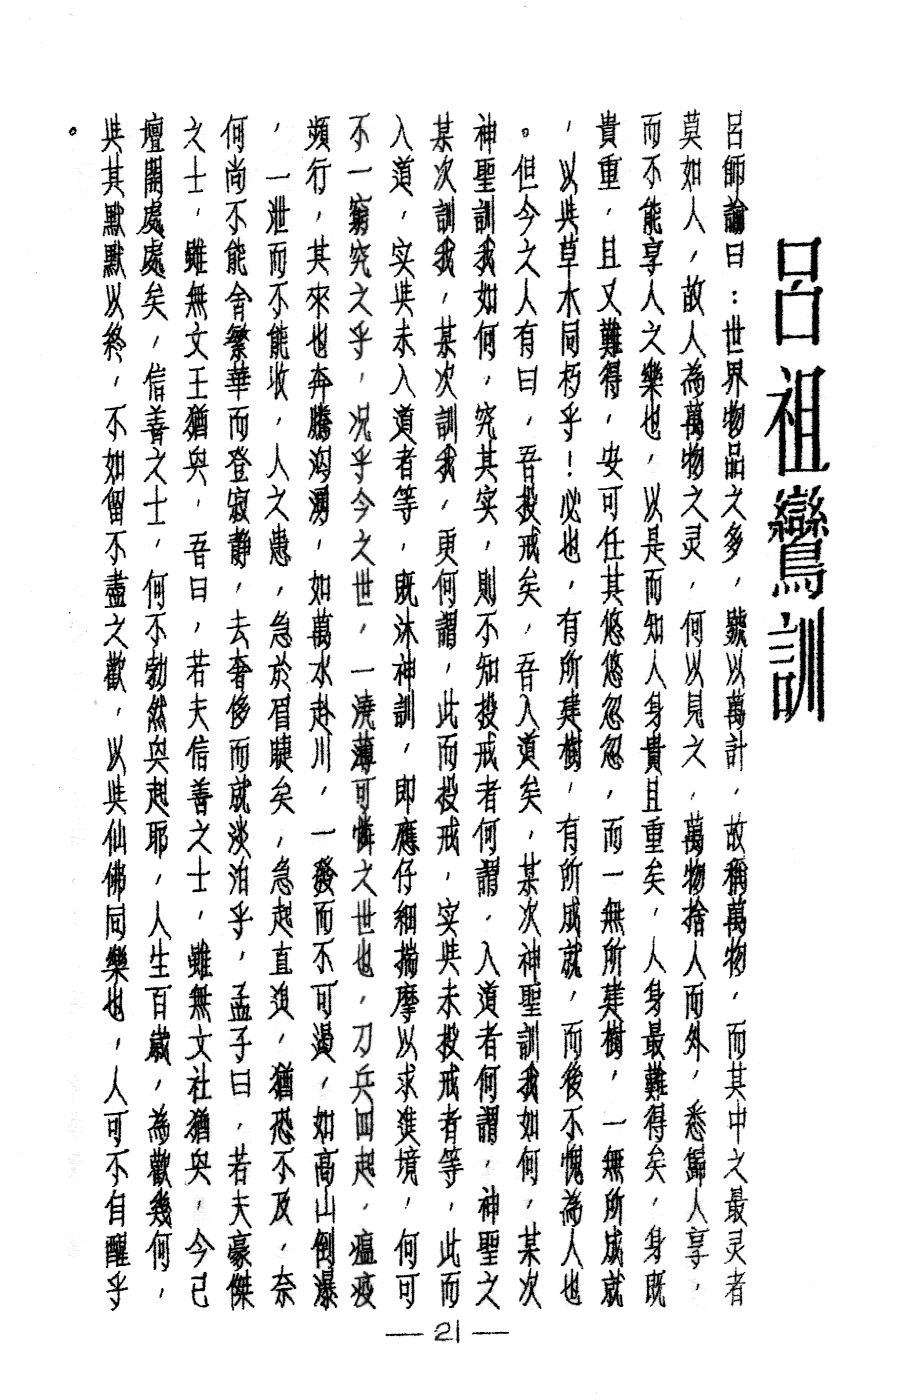 呂祖鸞訓
呂師諭曰：世界物品之多，號以萬計，故稱萬物，而其中之最灵者
莫如人，故人為萬物之灵，何以見之，萬物捨人而外，悉歸人享，
而不能享人之樂也，以是而知人身貴且重矣，人身最難得矣，身既
貴重，且又難得，安可任其悠悠忽忽，而一無所建樹，一無所成就
，以共草木同朽乎！必也，有所建樹，有所成就，而後不愧為人也
。但今之人有曰，吾投戒矣，吾入道矣，某次神聖訓我如何，某次
神聖訓我如何，究其实，則不知投戒者何謂，入道者何謂，神聖之
某次訓我，某次訓我，更何謂，此而投戒，实共未投戒者等，此而
入道，实共未入道者等，既沐神訓，即應仔細揣摩以求進境，何可
不一窮究之乎，况乎今之世，一澆薄可憐之世也，刀兵四起，瘟疫
頻行，其來也奔騰洶湧，如萬水赴川，一發而不可遏，如高山倒瀑
，一泄而不能收，人之患，急於眉睫矣，急起直追，猶恐不及，奈
何尚不能舍繁華而登寂靜，去奢侈而就淡泊乎，孟子曰，若夫豪傑
之士，雖無文王猶兴，吾曰，若夫信善之士，雖無文社猶兴，今已
壇開處處矣，信善之士，何不勃然兴起耶，人生百歲，為歡幾何，
共其默默以終，不如留不盡之歡，以共仙佛同樂也，人可不自醒乎
。
— 21 —